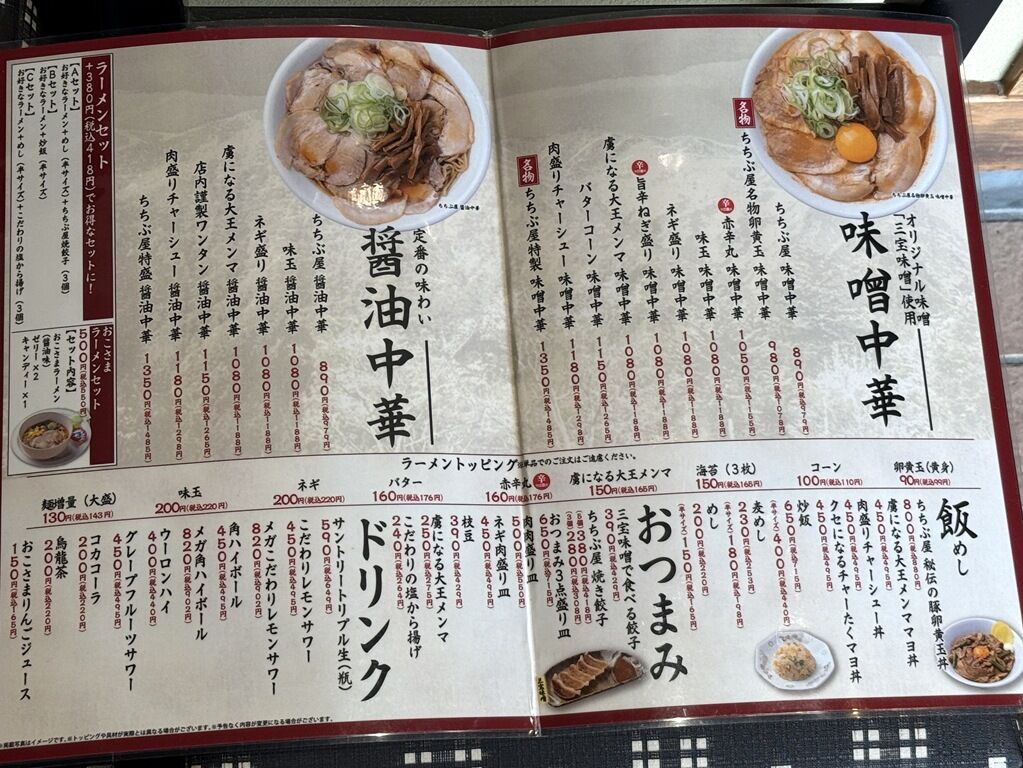 オリジナル味噌
「三宝味噌」使用
味噌中華
ちちぶ屋 味噌中華 890円(税込979円)
名物 ちちぶ屋名物卵黄玉 味噌中華 980円(税込1078円)
辛 赤辛丸 味噌中華 1050円(税込1155円)
味玉 味噌中華 1080円(税込1188円)
ネギ盛り 味噌中華 1080円(税込1188円)
辛 旨辛ねぎ盛り 味噌中華 1080円(税込1188円)
虜になる大王メンマ 味噌中華 1150円(税込1265円)
バターコーン 味噌中華 1080円(税込1188円)
肉盛りチャーシュー 味噌中華 1180円(税込1298円)
名物 ちちぶ屋特製 味噌中華 1350円(税込1485円)
ちちぶ屋名物卵黄玉 味噌中華
定番の味わい
醤油中華
ちちぶ屋 醤油中華 890円(税込979円)
味玉 醤油中華 1080円(税込1188円)
ネギ盛り 醤油中華 1080円(税込1188円)
虜になる大王メンマ 醤油中華 1080円(税込1188円)
店内謹製ワンタン 醤油中華 1150円(税込1265円)
肉盛りチャーシュー 醤油中華 1180円(税込1298円)
ちちぶ屋特盛 醤油中華 1350円(税込1485円)
ちちぶ屋 醤油中華
ラーメンセット
+380円(税込418円)でお得なセットに!
【Aセット】
お好きなラーメン+めし(半サイズ)+ちちぶ屋焼餃子(3個)
【Bセット】
お好きなラーメン+炒飯(半サイズ)
【Cセット】
お好きなラーメン+めし(半サイズ)+こだわりの塩から揚げ(3個)
おこさま
ラーメンセット
500円(税込550円)
【セット内容】
おこさまラーメン
(醤油味)
ゼリー×2
キャンディー×1
ラーメントッピング ※単品でのご注文はご遠慮ください。
卵黄玉(黄身) 90円(税込99円)
コーン 100円(税込110円)
海苔(3枚) 150円(税込165円)
虜になる大王メンマ 150円(税込165円)
赤辛丸 辛 160円(税込176円)
バター 160円(税込176円)
ネギ 200円(税込220円)
味玉 200円(税込220円)
麺増量(大盛) 130円(税込143円)
飯 めし
ちちぶ屋 秘伝の豚卵黄玉丼 800円(税込880円)
虜になる大王メンママヨ丼 450円(税込495円)
肉盛りチャーシュー丼 450円(税込495円)
クセになるチャーたくマヨ丼 450円(税込495円)
炒飯 650円(税込715円)
(半サイズ)400円(税込440円)
麦めし 230円(税込253円)
(半サイズ)180円(税込198円)
めし 200円(税込220円)
(半サイズ)150円(税込165円)
おつまみ
三宝味噌で食べる餃子 390円(税込429円)
ちちぶ屋 焼き餃子
(5個)380円(税込418円)
(3個)280円(税込308円)
おつまみ3点盛り皿 650円(税込715円)
肉肉盛り皿 500円(税込550円)
ネギ肉盛り皿 450円(税込495円)
枝豆 390円(税込429円)
虜になる大王メンマ 200円(税込220円)
こだわりの塩から揚げ 240円(税込264円)
ドリンク
サントリートリプル生(瓶) 590円(税込649円)
こだわりレモンサワー 450円(税込495円)
メガこだわりレモンサワー 820円(税込902円)
角ハイボール 450円(税込495円)
メガ角ハイボール 820円(税込902円)
ウーロンハイ 400円(税込440円)
グレープフルーツサワー 450円(税込495円)
コカコーラ 200円(税込220円)
烏龍茶 200円(税込220円)
おこさまりんごジュース 150円(税込165円)
※掲載写真はイメージです。※トッピングや具材が実際とは異なる場合がございます。※予告なく内容が変更になる場合がございます。